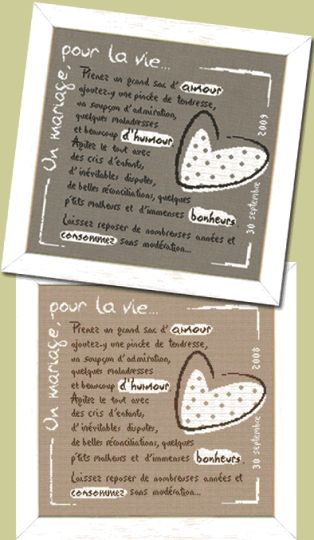 Un mariage,
pour la vie...
Prenez un grand sac d'amour
ajoutez-y une pincée de tendresse,
un soupçon d'admiration,
quelques maladresses
et beaucoup d'humour
Agitez le tout avec
des cris d'enfants,
d'inévitables disputes,
de belles réconciliations, quelques
p'tits malheurs et d'immenses bonheurs.
Laissez reposer de nombreuses années et
consommez sans modération...
30 septembre 2009
Un mariage,
pour la vie...
Prenez un grand sac d'amour
ajoutez-y une pincée de tendresse,
un soupçon d'admiration,
quelques maladresses
et beaucoup d'humour
Agitez le tout avec
des cris d'enfants,
d'inévitables disputes,
de belles réconciliations, quelques
p'tits malheurs et d'immenses bonheurs.
Laissez reposer de nombreuses années et
consommez sans modération...
30 septembre 2008